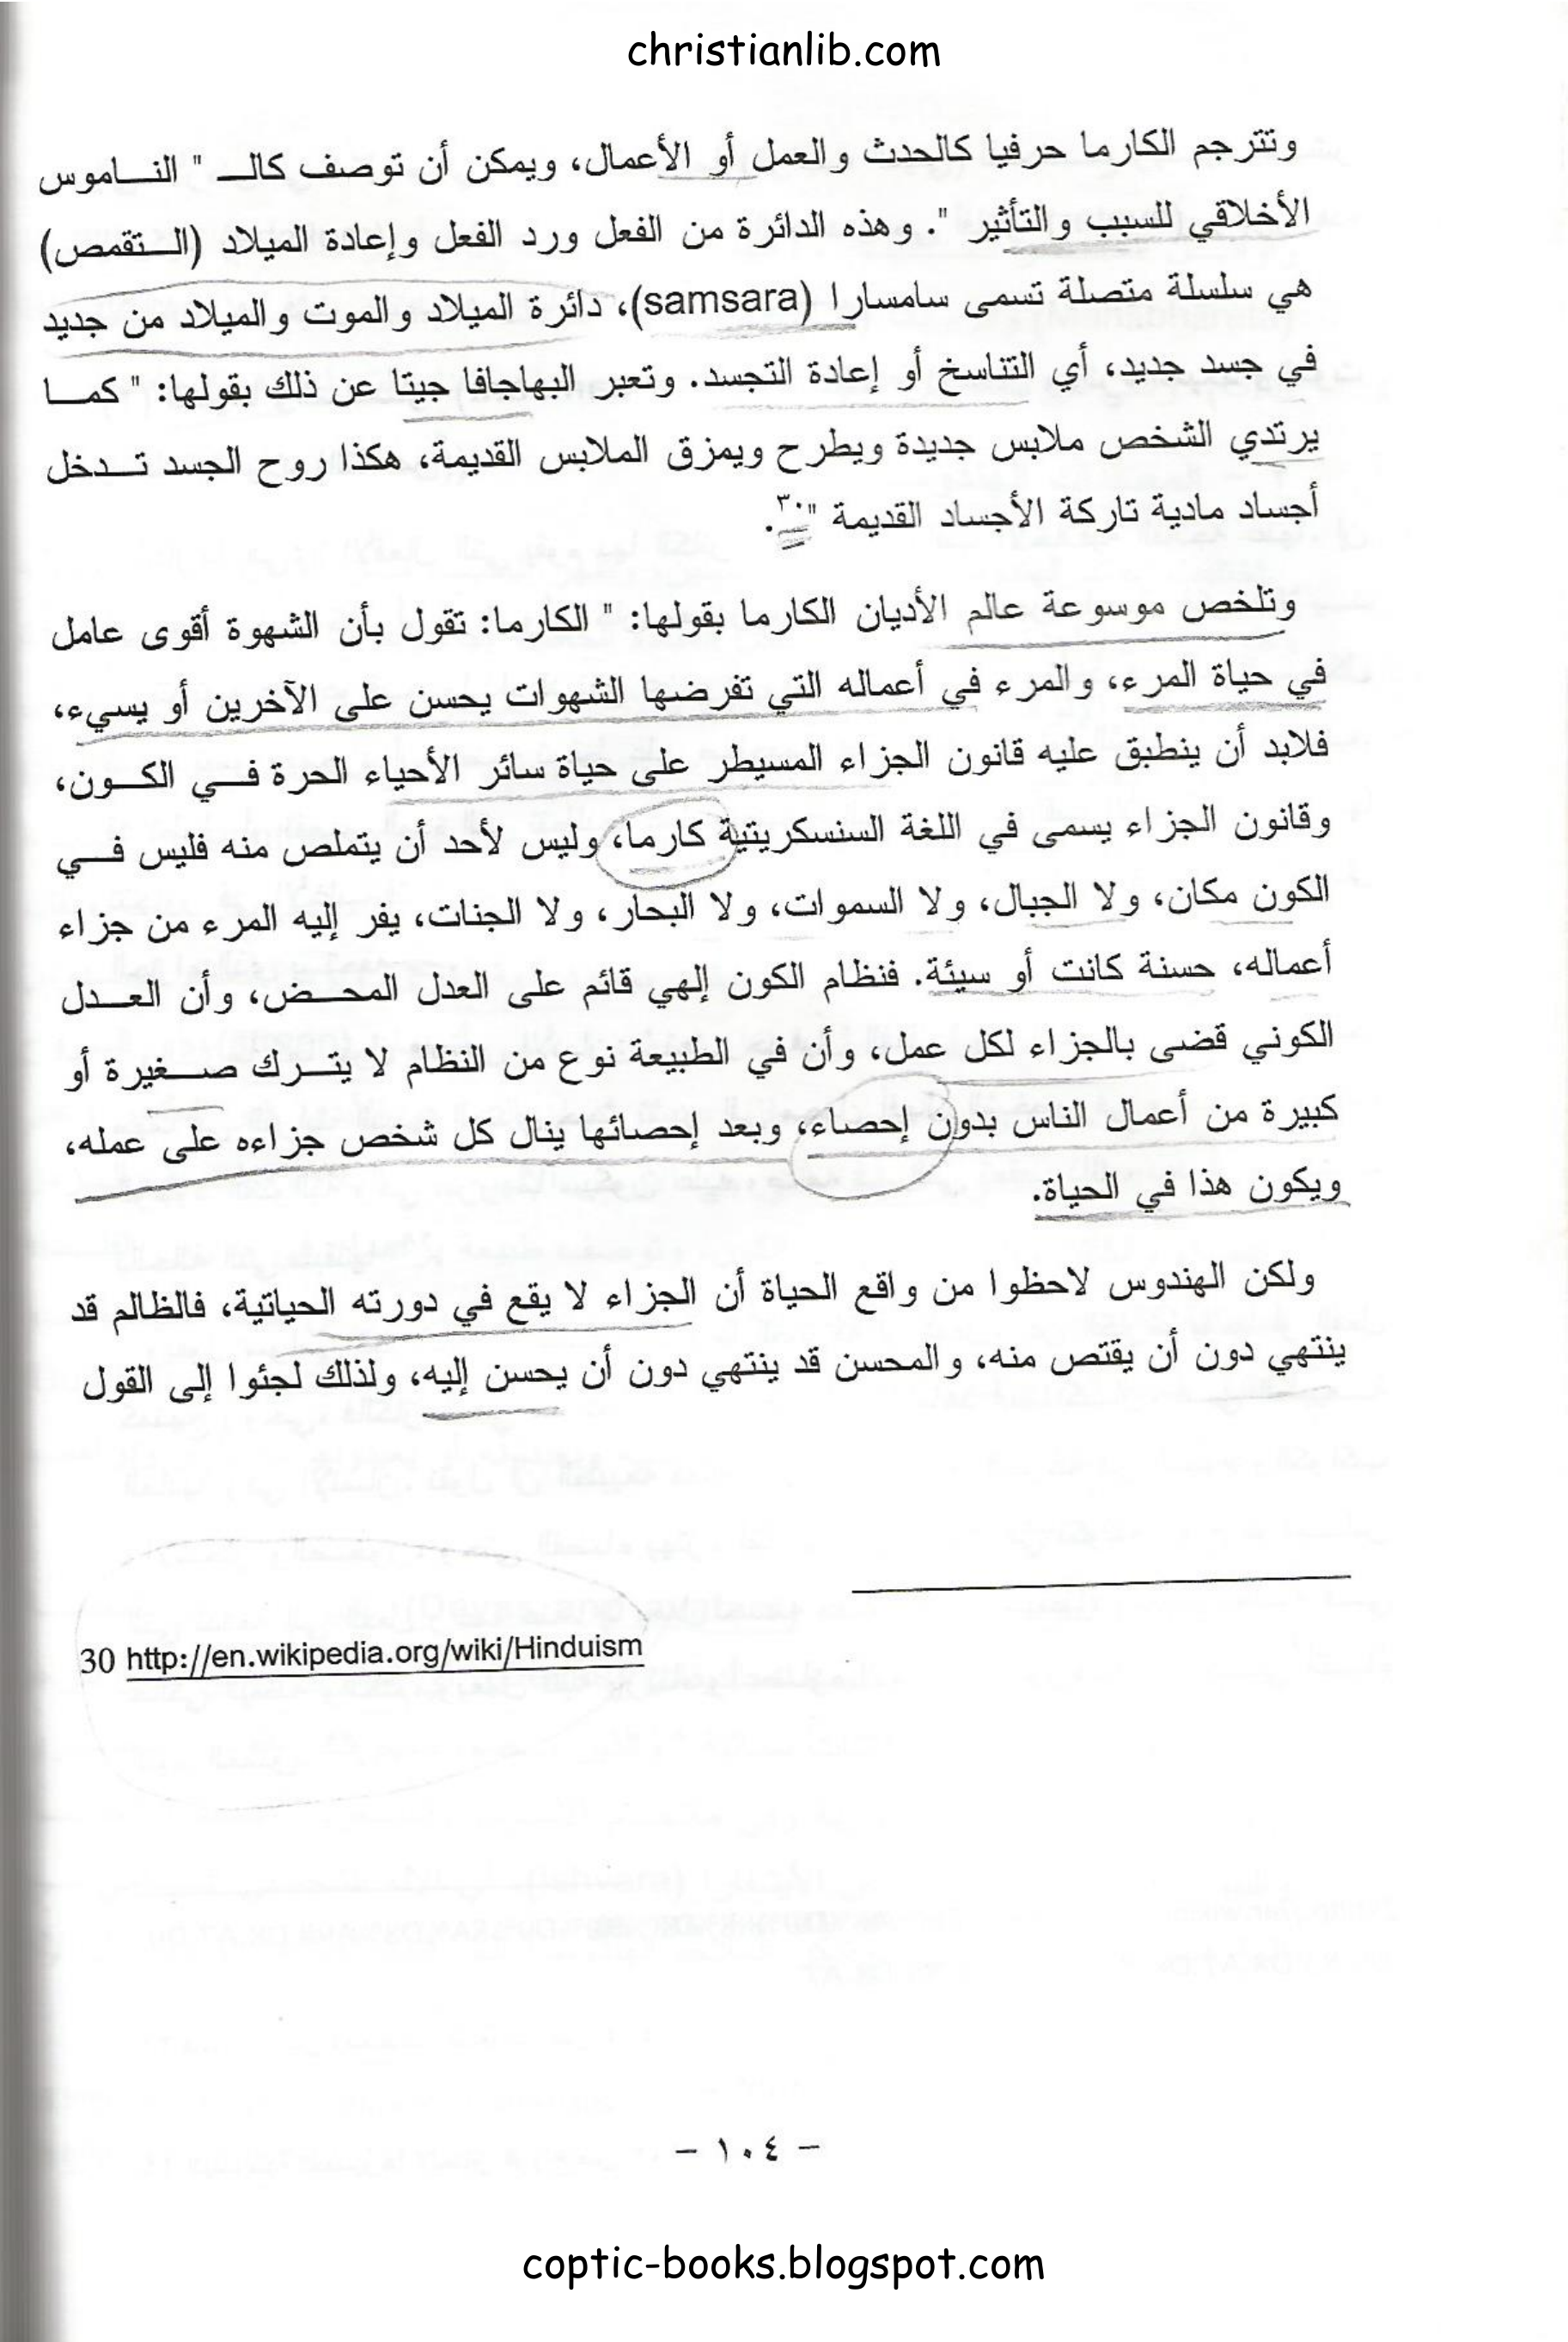 christianlib.com
وتترجم الكارما حرفيا كالحدث والعمل أو الأعمال، ويمكن أن توصف كالـ " الناموس
الأخلاقي للسبب والتأثير ". وهذه الدائرة من الفعل ورد الفعل وإعادة الميلاد (التقمص)
هي سلسلة متصلة تسمى سامسارا (samsara)، دائرة الميلاد والموت والميلاد من جديد
في جسد جديد، أي التناسخ أو إعادة التجسد. وتعبر البهاجافا جيتا عن ذلك بقولها: " كما
يرتدي الشخص ملابس جديدة ويطرح ويمزق الملابس القديمة، هكذا روح الجسد تدخل
أجساد مادية تاركة الأجساد القديمة "٣٠.
وتلخص موسوعة عالم الأديان الكارما بقولها: " الكارما: تقول بأن الشهوة أقوى عامل
في حياة المرء، والمرء في أعماله التي تفرضها الشهوات يحسن على الآخرين أو يسيء،
فلابد أن ينطبق عليه قانون الجزاء المسيطر على حياة سائر الأحياء الحرة في الكون،
وقانون الجزاء يسمى في اللغة السنسكريتية كارما، وليس لأحد أن يتملص منه فليس في
الكون مكان، ولا الجبال، ولا السموات، ولا البحار، ولا الجنات، يفر إليه المرء من جزاء
أعماله، حسنة كانت أو سيئة. فنظام الكون إلهي قائم على العدل المحض، وأن العدل
الكوني قضى بالجزاء لكل عمل، وأن في الطبيعة نوع من النظام لا يترك صغيرة أو
كبيرة من أعمال الناس بدون إحصاء، وبعد إحصائها ينال كل شخص جزاءه على عمله،
ويكون هذا في الحياة.
ولكن الهندوس لاحظوا من واقع الحياة أن الجزاء لا يقع في دورته الحياتية، فالظالم قد
ينتهي دون أن يقتص منه، والمحسن قد ينتهي دون أن يحسن إليه، ولذلك لجئوا إلى القول
30 http://en.wikipedia.org/wiki/Hinduism
- ١٠٤ -
coptic-books.blogspot.com